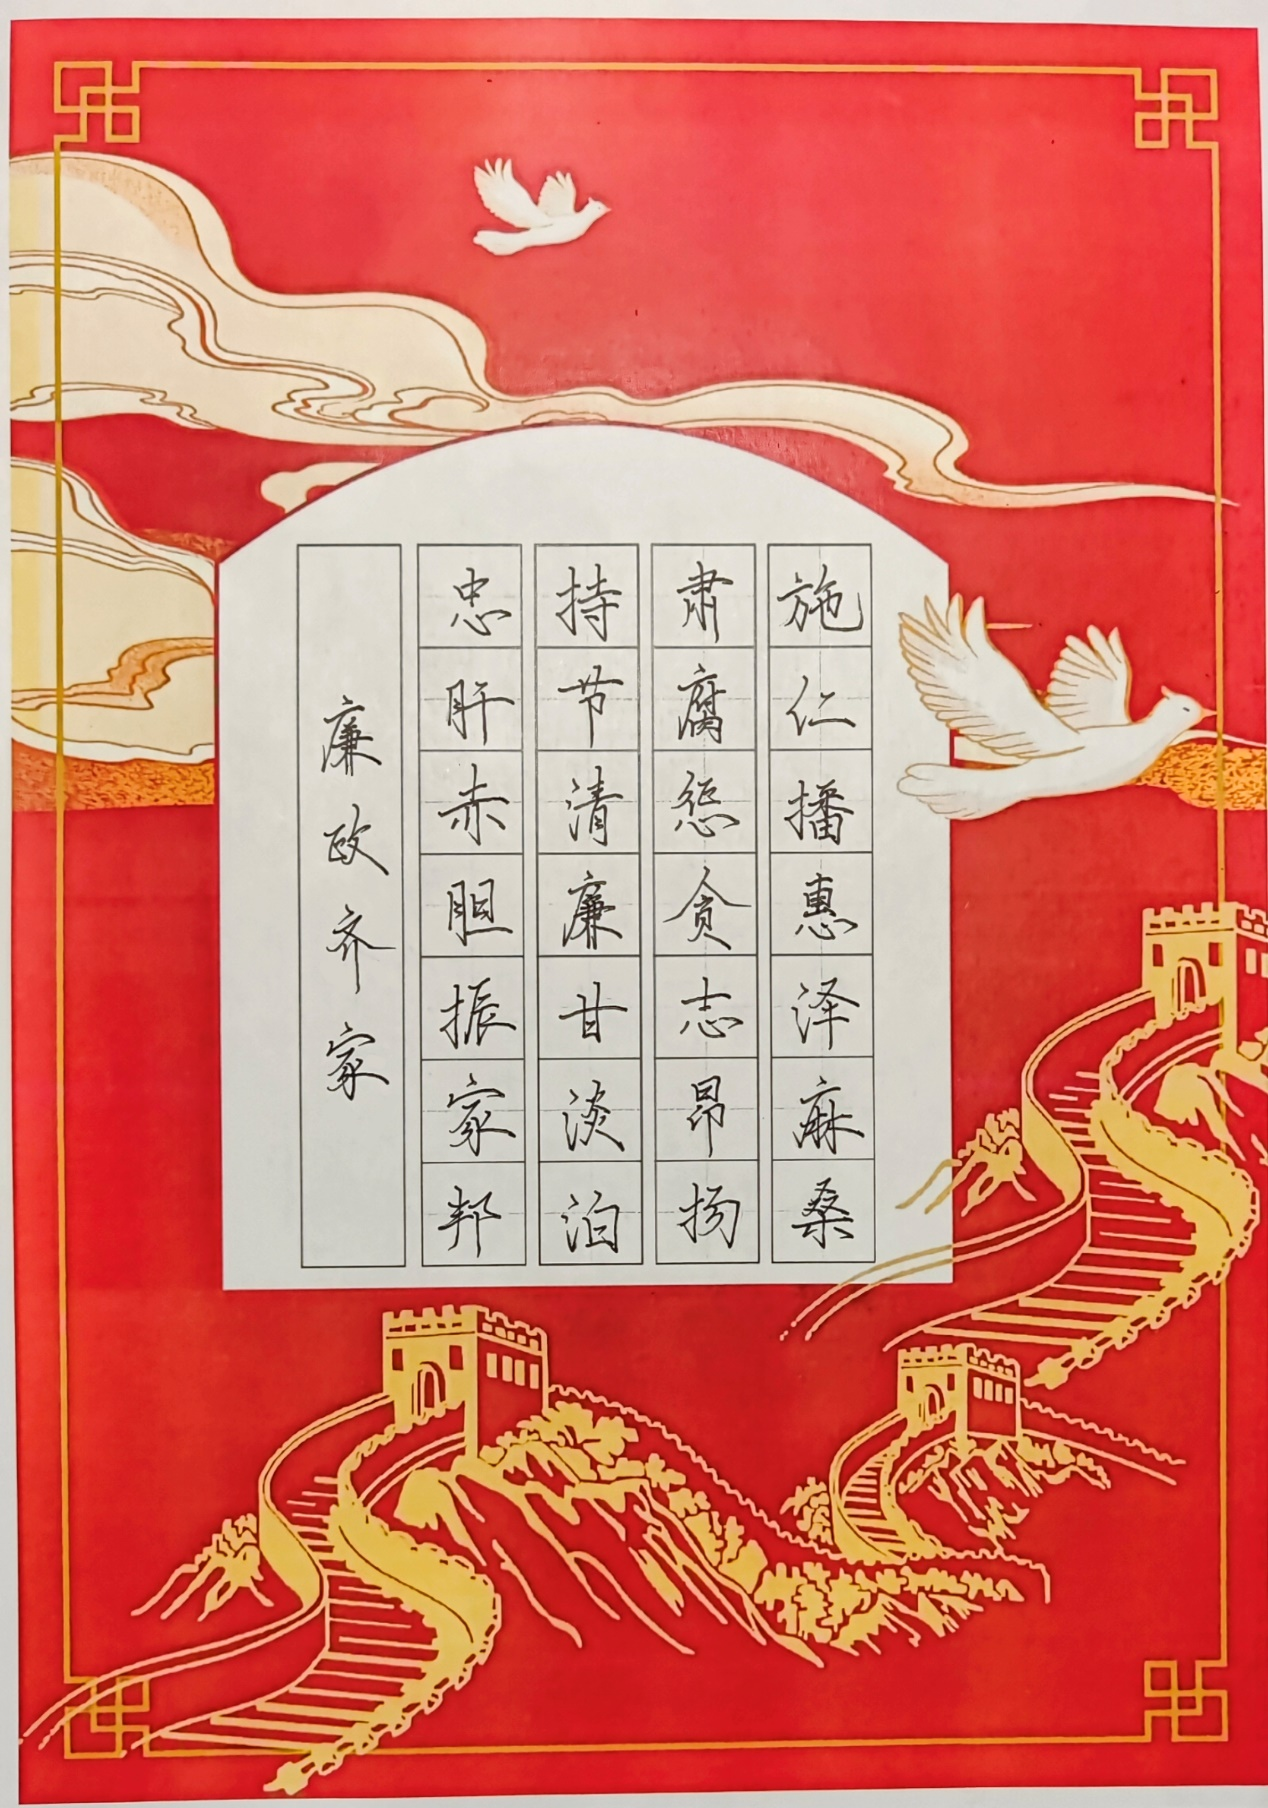 施仁播惠泽麻桑
肃腐惩贪志昂扬
持节清廉甘淡泊
忠肝赤胆振家邦
廉政齐家